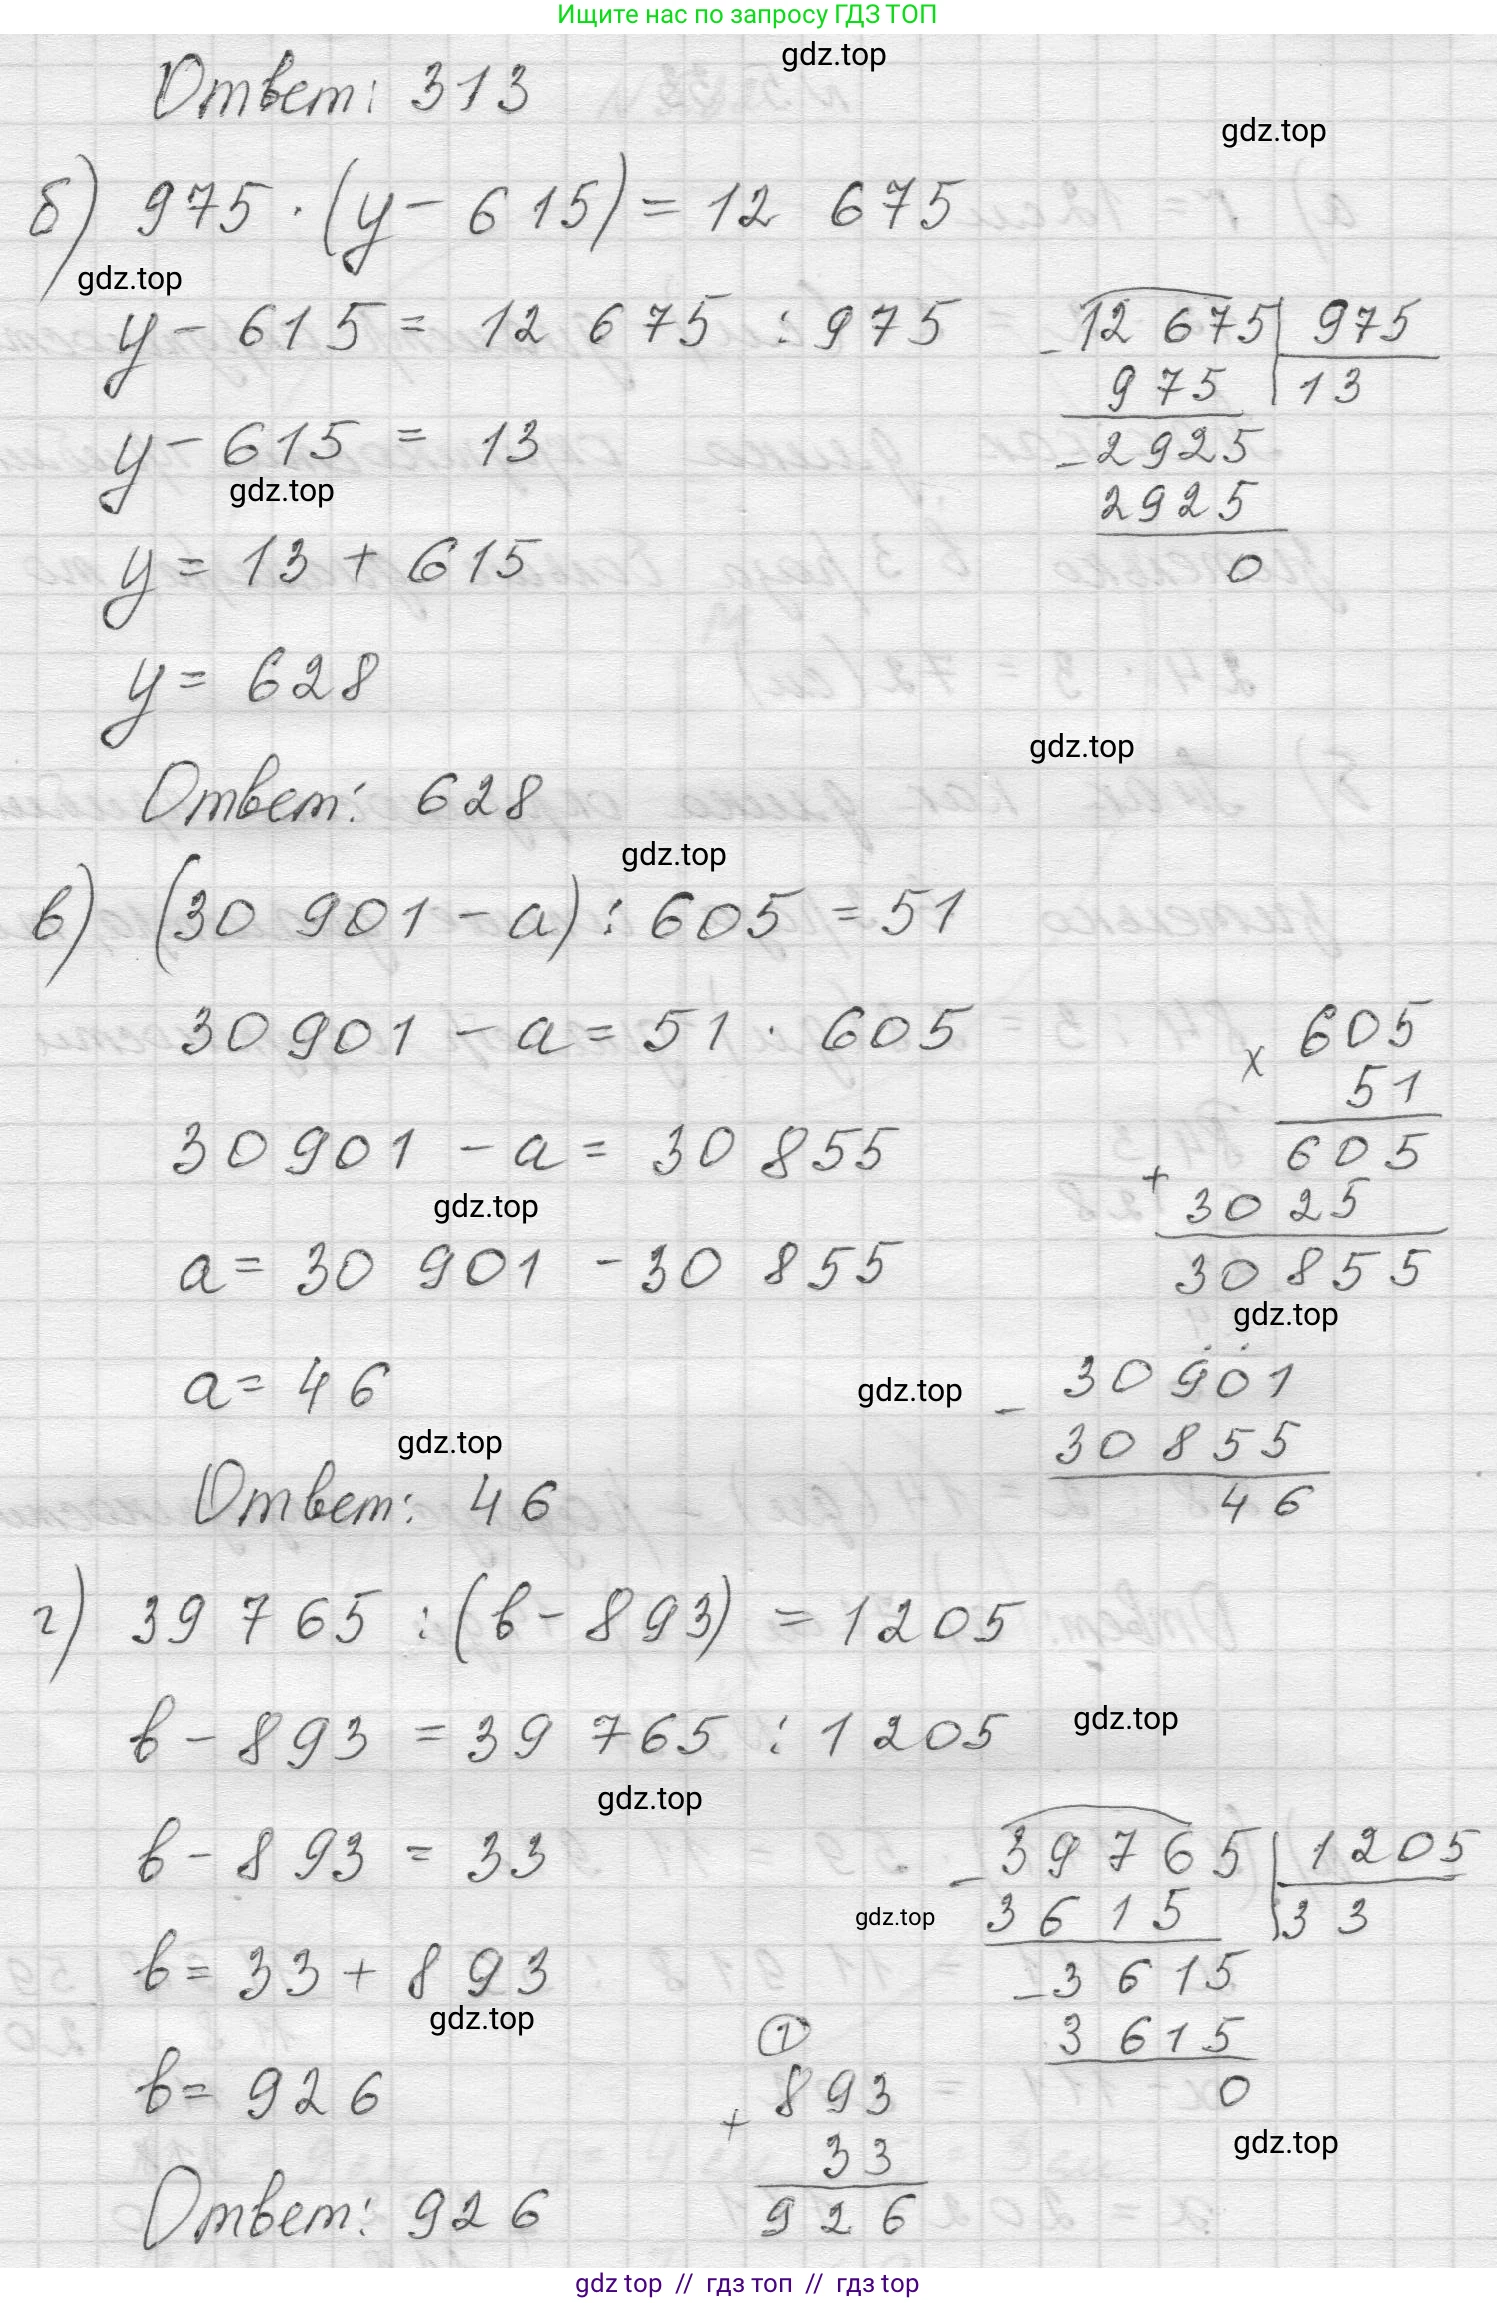 Ищите нас по запросу ГДЗ ТОП
gdz.top
Ответ: 313
gdz.top
б) 975 · (y - 615) = 12 675
gdz.top
y - 615 = 12 675 : 975
12 675 | 975
- 975 | 13
y - 615 = 13
- 2925
gdz.top
2925
y = 13 + 615
0
y = 628
gdz.top
Ответ: 628
gdz.top
в) (30 901 - a) : 605 = 51
30 901 - a = 51 · 605
605
x 51
30 901 - a = 30 855
605
gdz.top
+ 3025
a = 30 901 - 30 855
30 855
gdz.top
a = 46
gdz.top
30901
- 30 855
gdz.top
46
Ответ: 46
г) 39 765 : (b - 893) = 1205
b - 893 = 39 765 : 1205
gdz.top
gdz.top
b - 893 = 33
39765 | 1205
- 3615 | 33
gdz.top
b = 33 + 893
- 3615
gdz.top
3615
1
b = 926
893
0
+ 33
gdz.top
926
Ответ: 926
gdz top // гдз топ // гдз top